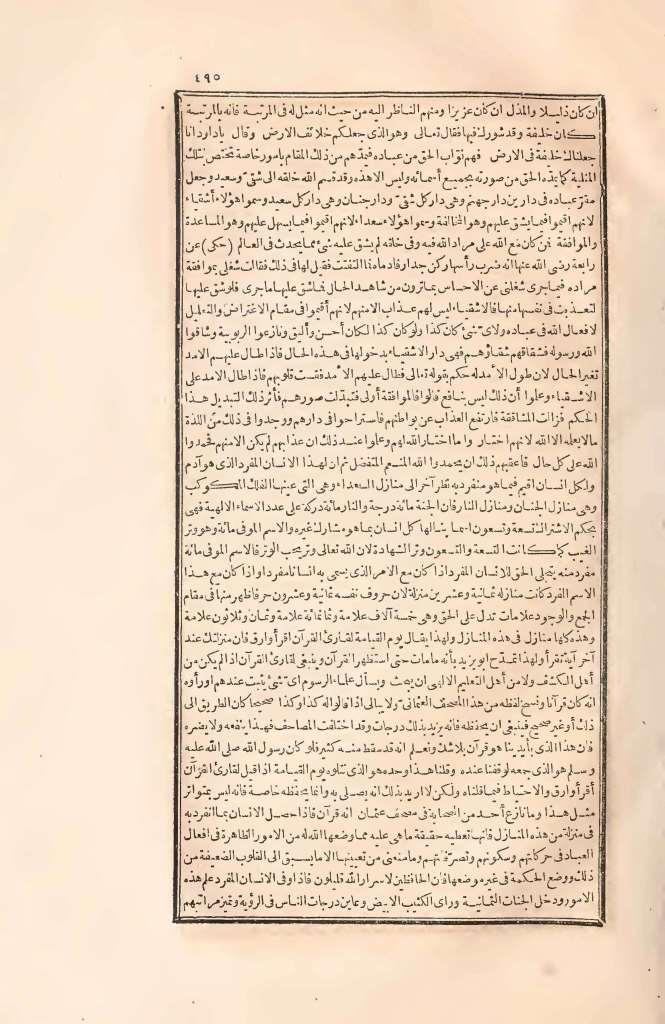 ٤٩٥
ان كان ذليلا والمذل ان كان عزيزا ومنهم الناظر اليه من حيث انه مثل له فى المرتبة فانه بالمرتبة
كان خليفة وقد شورك فيها فقال تعالى وهو الذى جعلكم خلائف الارض وقال ياداود انا
جعلناك خليفة فى الارض فهم نواب الحق من عباده فيمدهم من ذلك المقام بامور خاصة تختص بتلك
المثلية كما يمده الحق من صورته بجميع أسمائه وليس الا هذه وقد قسم الله خلقه الى شقى وسعيد وجعل
مقر عباده فى دارين دار جهنم وهى دار كل شقى ودار جنان وهى دار كل سعيد وسموا هؤلاء أشقياء
لانهم اقيموا فيما يشق عليهم وهو المخالفة وسموا هؤلاء سعداء لانهم اقيموا فيما يسهل عليهم وهو المساعدة
والموافقة فمن كان مع الله على مراد الله فيه وفى خلقه لم يشق عليه شئ مما يحدث فى العالم (حكى) عن
رابعة رضى الله عنها انه ضرب رأسها ركن جدار فادماه فما التفتت فقيل لها فى ذلك فقالت شغلى بموافقة
مراده فيما جرى شغلنى عن الاحساس بما ترون من شاهد الحال فما شق عليها ما جرى فلو شق عليها
لتعذبت فى نفسها منها فالاشقياء ليس لهم عذاب الا منهم لانهم أقيموا فى مقام الاعتراض والتعليل
لافعال الله فى عباده ولاى شئ كان كذا ولو كان كذا لكان أحسن وأليق ونازعوا الربوبية وشاقوا
الله ورسوله فشقاقهم شقاؤهم فهى دار الاشقياء بدخولها فى هذه الحال فاذا طال عليهم الامد
تغير الحال لان طول الامد له حكم بقوله تعالى فطال عليهم الامد فقست قلوبهم فاذا طال الامد على
الاشقياء وعلموا أن ذلك ليس بنافع قالوا فالموافقة أولى فتبدلت صورهم فأثر ذلك التبديل هذا
الحكم فزالت المشاققة فارتفع العذاب عن بواطنهم فاستراحوا فى دارهم ووجدوا فى ذلك من اللذة
مالا يعلمه الا الله لانهم اختاروا ما اختار الله لهم وعلموا عند ذلك ان عذابهم لم يكن الا منهم فحمدوا
الله على كل حال فاعقبهم ذلك ان يحمدوا الله المنعم المتفضل ثم ان لهذا الانسان المفرد الذى هو آدم
ولكل انسان اقيم فيما هو منفرد به نظر آخر الى منازل السعداء وهى التى عينها الفلك المكوكب
وهى منازل الجنان ومنازل النار فان الجنة مائة درجة والنار مائة دركة على عدد الاسماء الالهية فهى
بحكم الاشتراك تسعة وتسعون اسما ينالها كل انسان بما هو مشارك غيره والاسم الموفى مائة وهو وتر
الغيب كما كانت التسعة والتسعون وتر الشهادة لان الله تعالى وتر يحب الوتر فالاسم الموفى مائة
مفرد منه يتجلى الحق للانسان المفرد اذا كان مع الامر الذى يسمى به انسانا مفردا واذا كان مع هذا
الاسم الفرد كانت منازله ثمانية وعشرين منزلة لان حروف نفسه ثمانية وعشرون حرفا ظهر منها فى مقام
الجمع والوجود علامات تدل على الحق وهى خمسة آلاف علامة وثمانمائة علامة وثمان وثلاثون علامة
وهذه كلها منازل فى هذه المنازل ولهذا يقال يوم القيامة لقارئ القرآن اقرأ وارق فان منزلتك عند
آخر آية تقرأ ولهذا تمدح ابو يزيد بأنه مامات حتى استظهر القرآن وينبغى لقارئ القرآن اذا لم يكن من
أهل الكشف ولا من أهل التعليم الالهى ان يبحث ويسأل علماء الرسوم اى شئ يثبت عندهم اورأوه
انه كان قرآنا ونسخ لفظه من هذا المصحف العثمانى ولا يبالى اذا قالوا له كذا وكذا صحيحا كان الطريق الى
ذلك أو غير صحيح فينبغى ان يحفظه فانه يزيد بذلك درجات وقد اختلفت المصاحف فهذا ينفعه ولا يضره
فان هذا الذى بأيدينا هو قرآن بلا شك ونعلم انه قد سقط منه كثير فلو كان رسول الله صلى الله عليه
وسلم هو الذى جمعه لوقفنا عنده وقلنا هذا وحده هو الذى نتلوه يوم القيامة اذا قيل لقارئ القرآن
أقرأ وارق والاحتياط فيما قلناه ولكن لا اريد بذلك انه يصلى به وانما يحفظه خاصة فانه ليس بمتواتر
مثل هذا وما نازع أحد من الصحابة فى مصحف عثمان انه قرآن فاذا حصل الانسان بما انفرد به
فى منزلة من هذه المنازل فانها تعطيه حقيقة ما هى عليه مما وضعها الله له من الامور الظاهرة فى افعال
العباد فى حركاتهم وسكونهم وتصرفاتهم وما منعنى من تعيينها الا ما يسبق الى القلوب الضعيفة من
ذلك ووضع الحكمة فى غير موضعها فان الحافظين لاسرار الله قليلون فاذا وفى الانسان المفرد علم هذه
الامور ودخل الجنات الثمانية ورأى الكثيب الابيض وعاين درجات الناس فى الرؤية وتميز مراتبهم